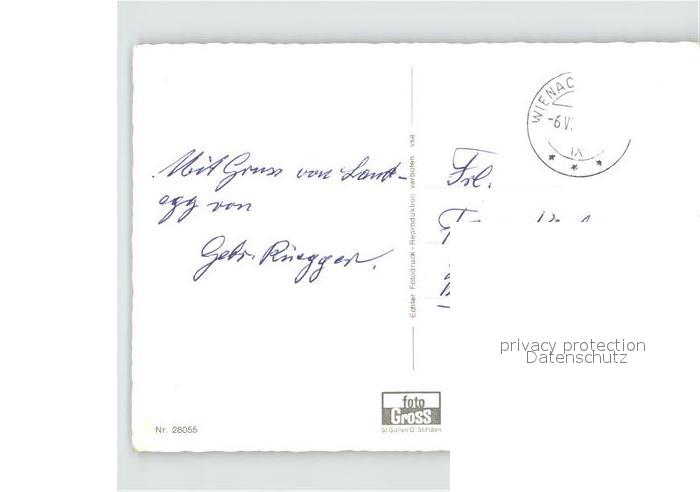 Mit Gruss von Land-
egg von
Gebr. Rüegger.
Echter Fotodruck - Reproduktion verboten
Frl.
WIENAC
-6.V.
IX
privacy protection
Datenschutz
foto
Gross
St.Gallen O St.Fiden
Nr. 28055